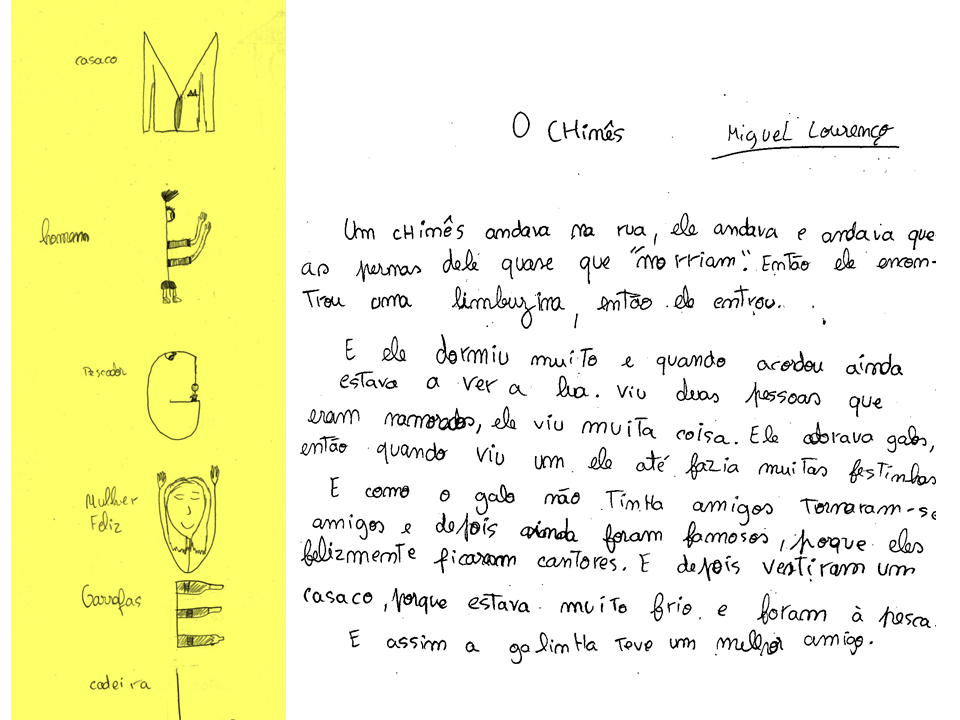 casaco
homem
Pescador
Mulher
Feliz
Garrafas
cadeira
O CHimês Miguel Lourenço
Um cHimês andava na rua, ele andava e andava que
as pernas dele quase que "morriam". Então ele encon-
Trou uma limbuzina, então ele entrou.
E ele dormiu muito e quando acordou ainda
estava a ver a lua. Viu duas pessoas que
eram namorados, ele viu muita coisa. Ele adorava galos,
então quando viu um ele até fazia muitas festinhas
E como o galo não TinHa amigos Tornaram-se
amigos e depois ainda foram famosos, porque eles
felizmente ficaram cantores. E depois vestiram um
casaco, porque estava muito frio e foram à pesca.
E assim a galinHa Teve um melhor amigo.